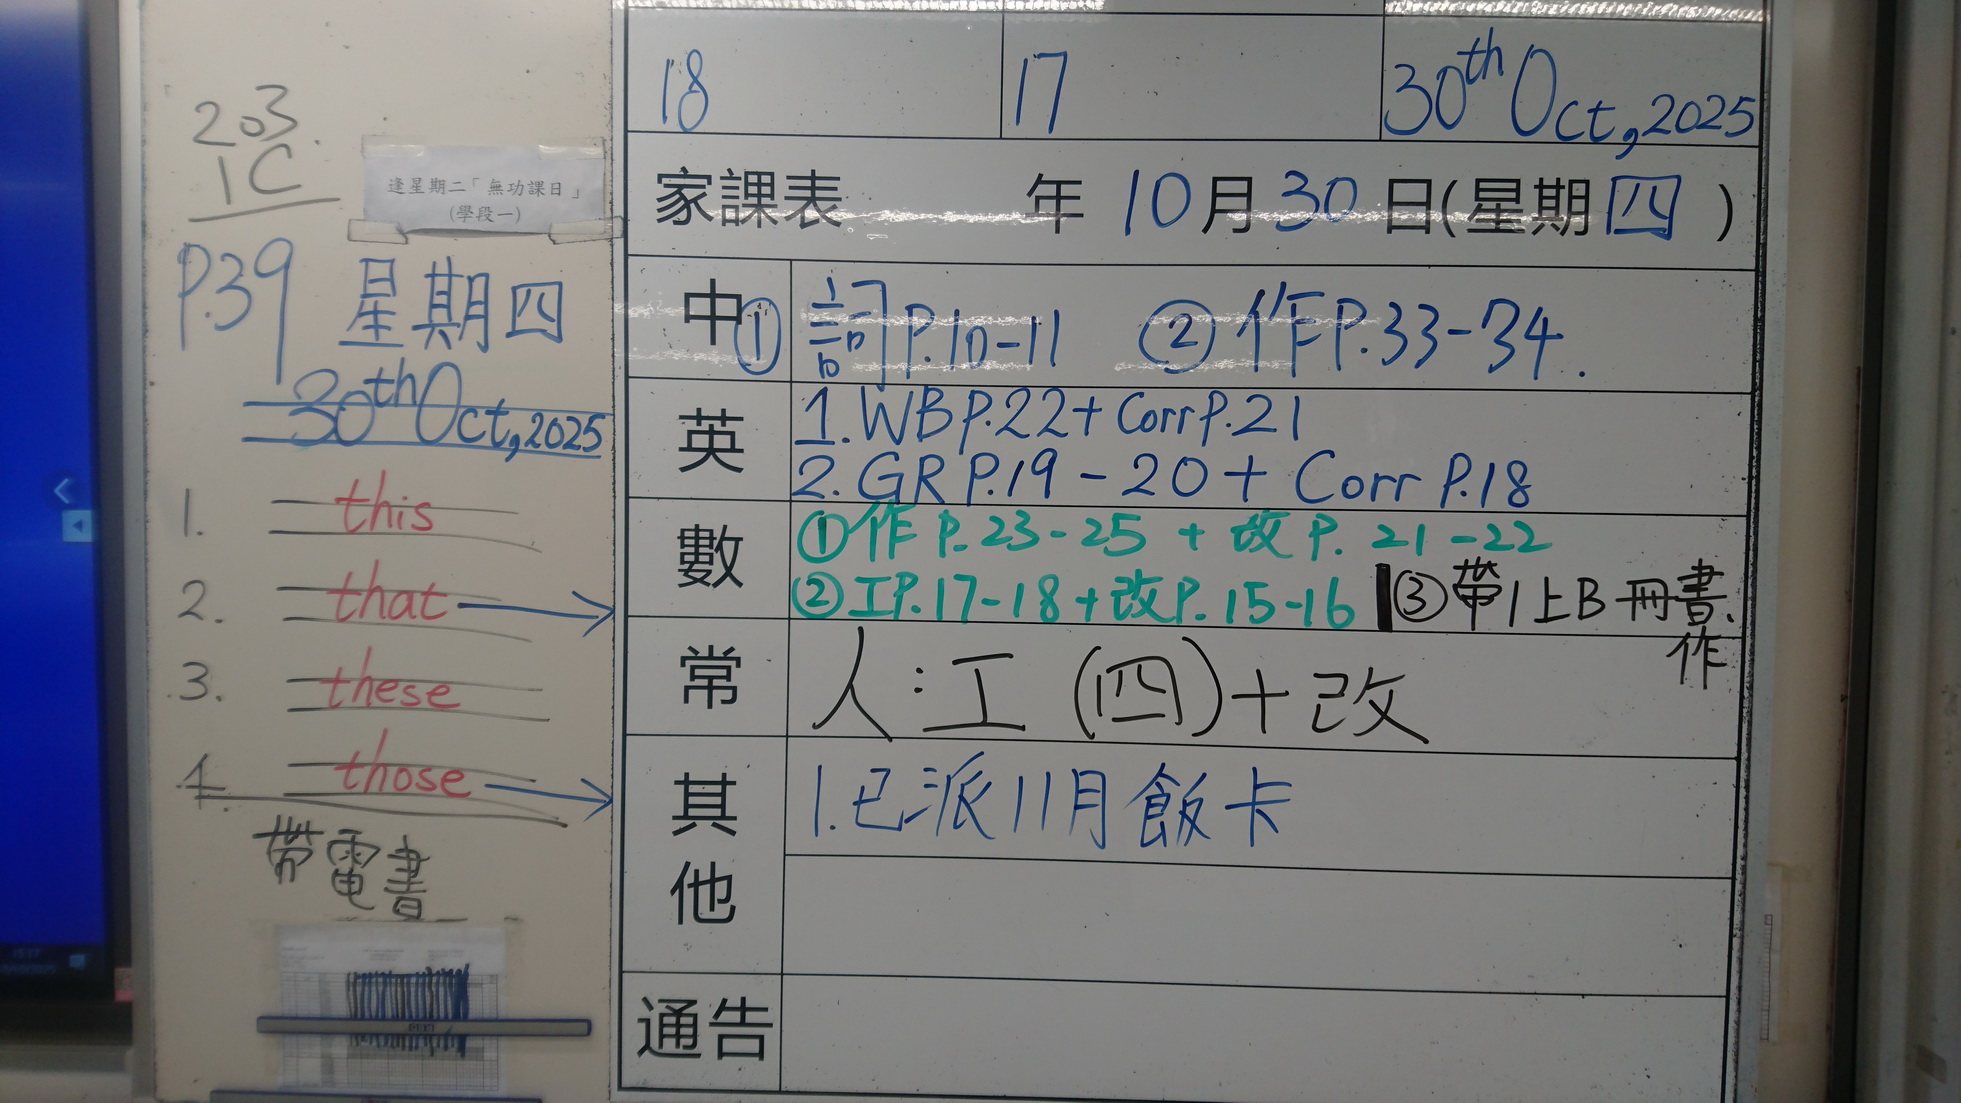 203
1C
逢星期二「無功課日」
(學段一)
P.39 星期四
30th Oct, 2025
1. this
2. that
3. these
4. those
帶電書
18 17 30th Oct, 2025
家課表 年10月30日(星期四)
中 ① 詞P.10-11 ② 作P.33-34.
英 1. WB P.22+ Corr P.21
2. GR P.19-20 + Corr P.18
數 ①作P.23-25 + 改P. 21-22
②工P.17-18+改P.15-16 ③帶1上B冊書、
作
常 人:工(四)+改
其他 1.已派11月飯卡
通告